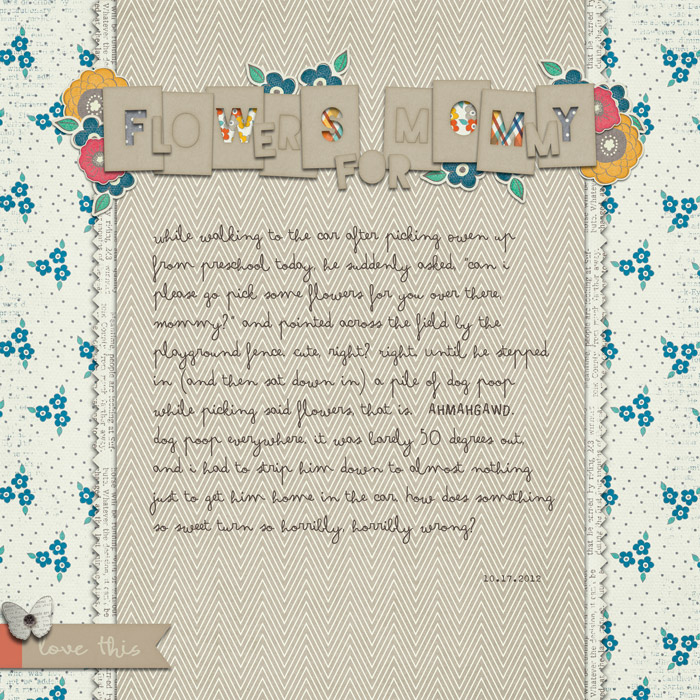 FLOWERS MOMMY
FOR
while walking to the car after picking owen up
from preschool today, he suddenly asked, "can i
please go pick some flowers for you over there,
mommy?" and pointed across the field by the
playground fence. cute, right? right. until he stepped
in (and then sat down in) a pile of dog poop
while picking said flowers, that is. AHMAHGAWD.
dog poop everywhere, it was barely 50 degrees out,
and i had to strip him down to almost nothing
just to get him home in the car. how does something
so sweet turn so horrilly, horrilly wrong?
10.17.2012
love this